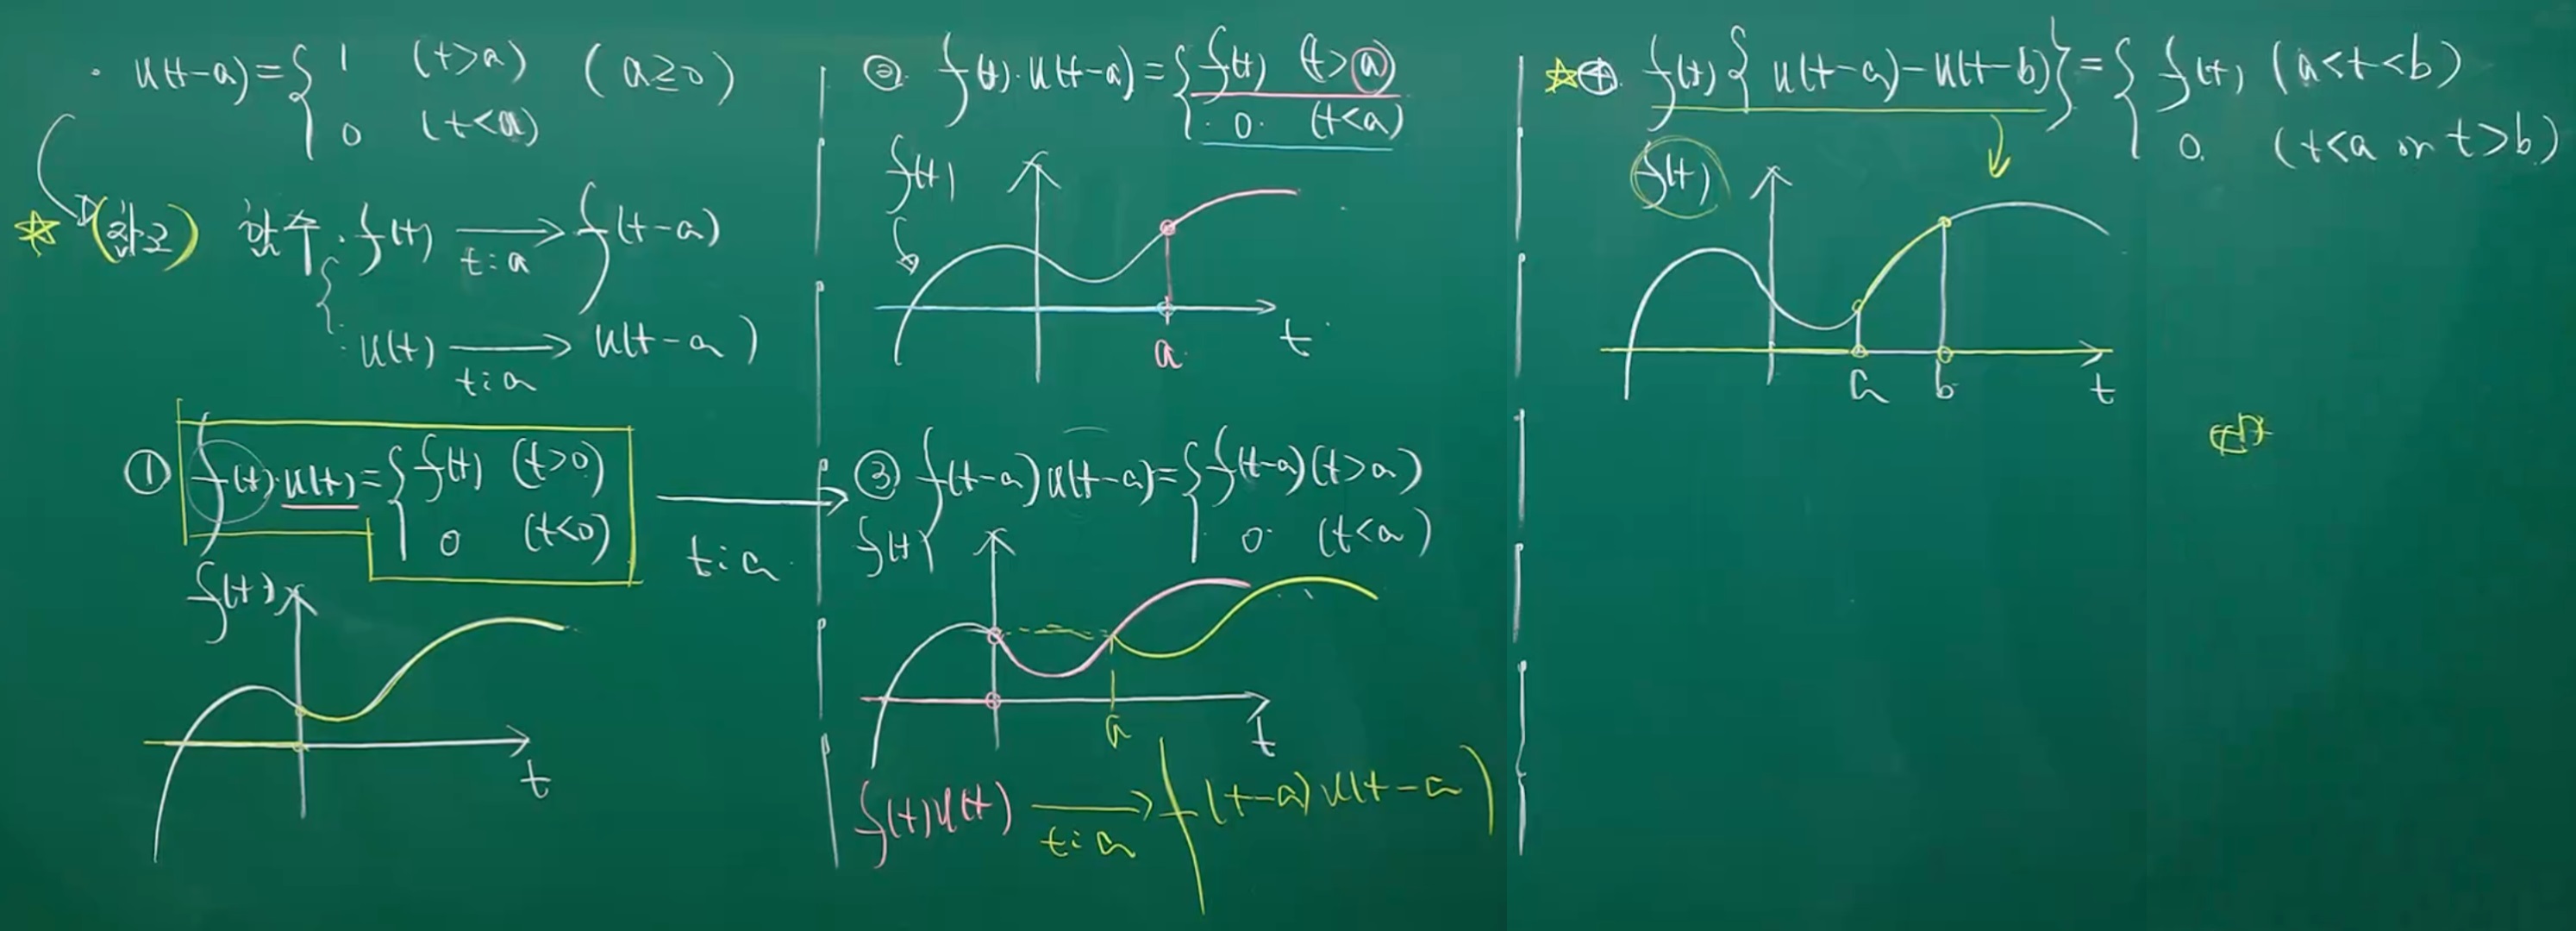 · u(t-a)={ 1 (t>a) (a≥0)
0 (t<a)
☆ (참고) 함수 · f(t) ⟶ f(t-a)
t:a
u(t) ⟶ u(t-a)
t:a
① f(t)·u(t)={ f(t) (t>0)
0 (t<0)
t:a
f(t)
t
② f(t)·u(t-a)={ f(t) (t>a)
0 (t<a)
f(t)
a
t
③ f(t-a)u(t-a)={ f(t-a) (t>a)
0 (t<a)
f(t)
a
t
f(t)u(t) ⟶ f(t-a)u(t-a)
t:a
☆④ f(t){u(t-a)-u(t-b)}={ f(t) (a<t<b)
0 (t<a or t>b)
f(t)
a b t